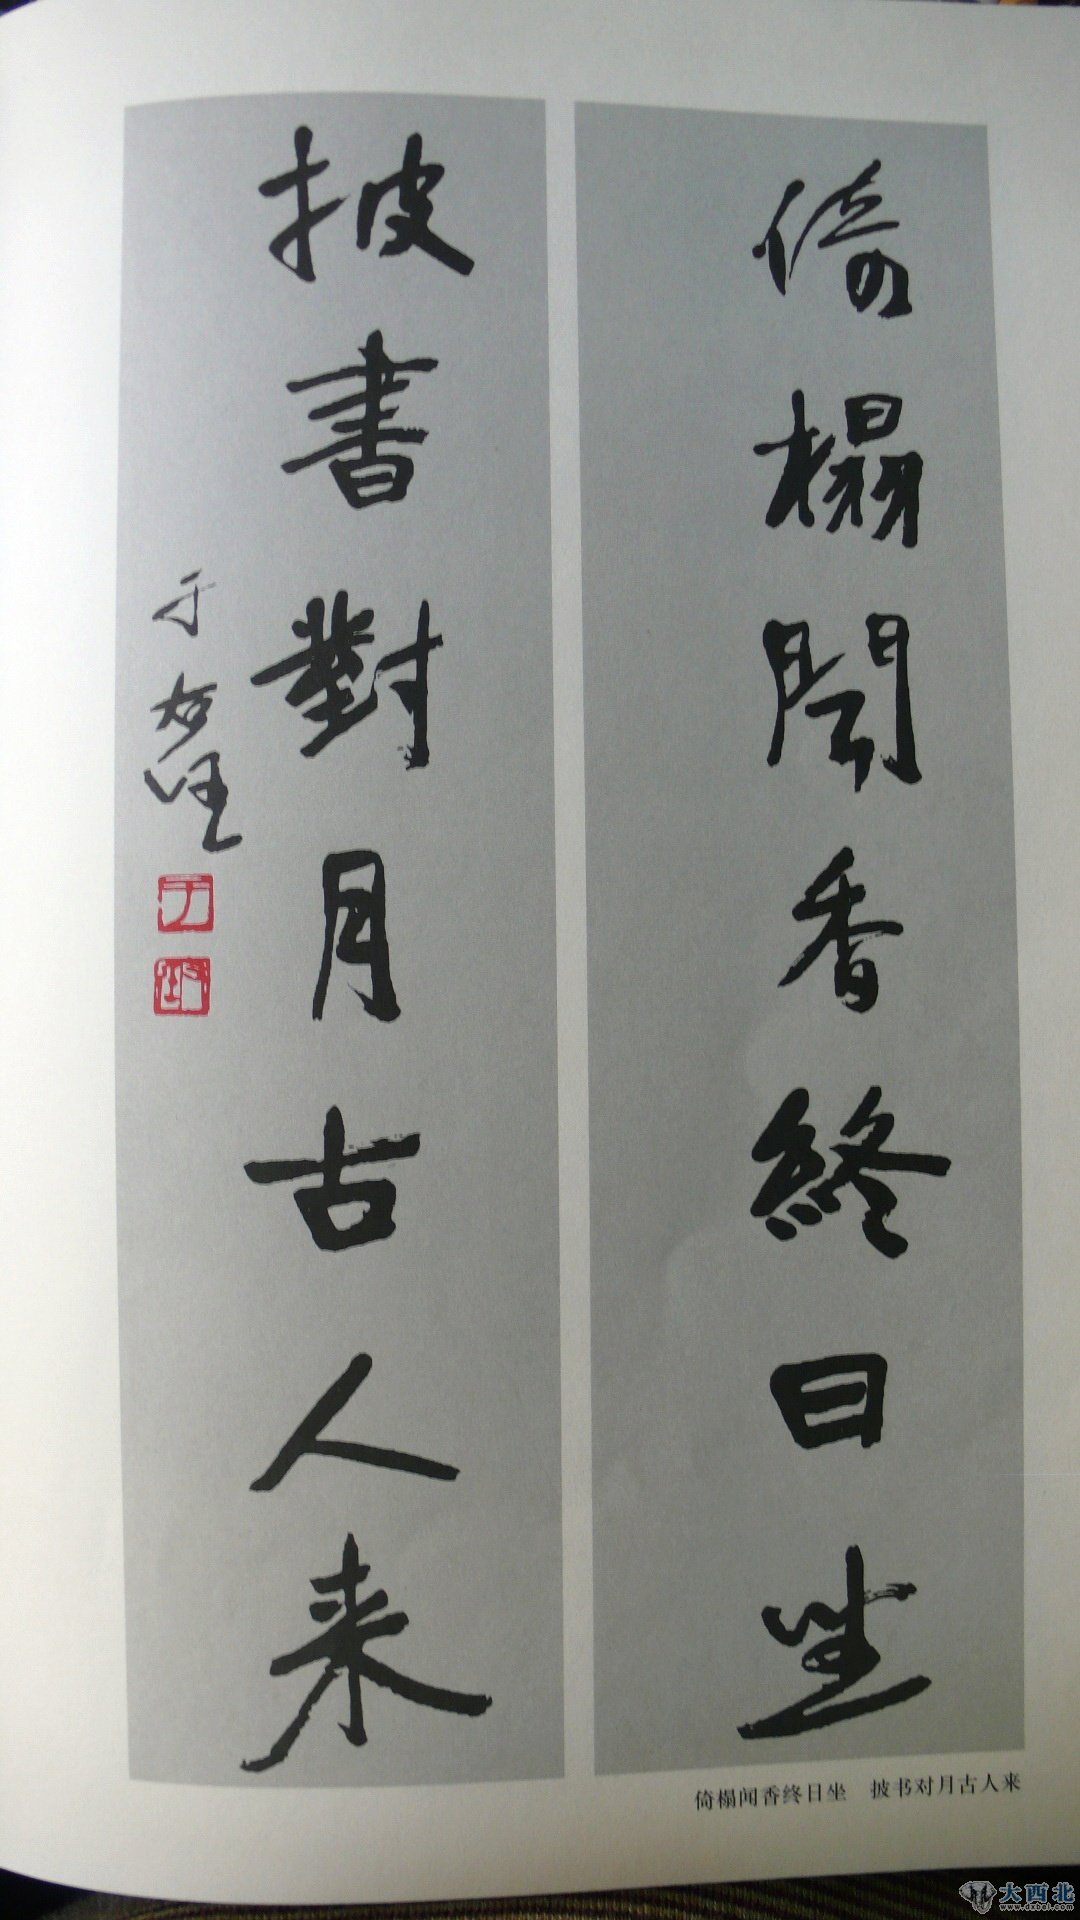 倚榻聞香終日坐
披書對月古人来
于右任
倚榻闻香终日坐　披书对月古人来
大西北
www.dxbei.com